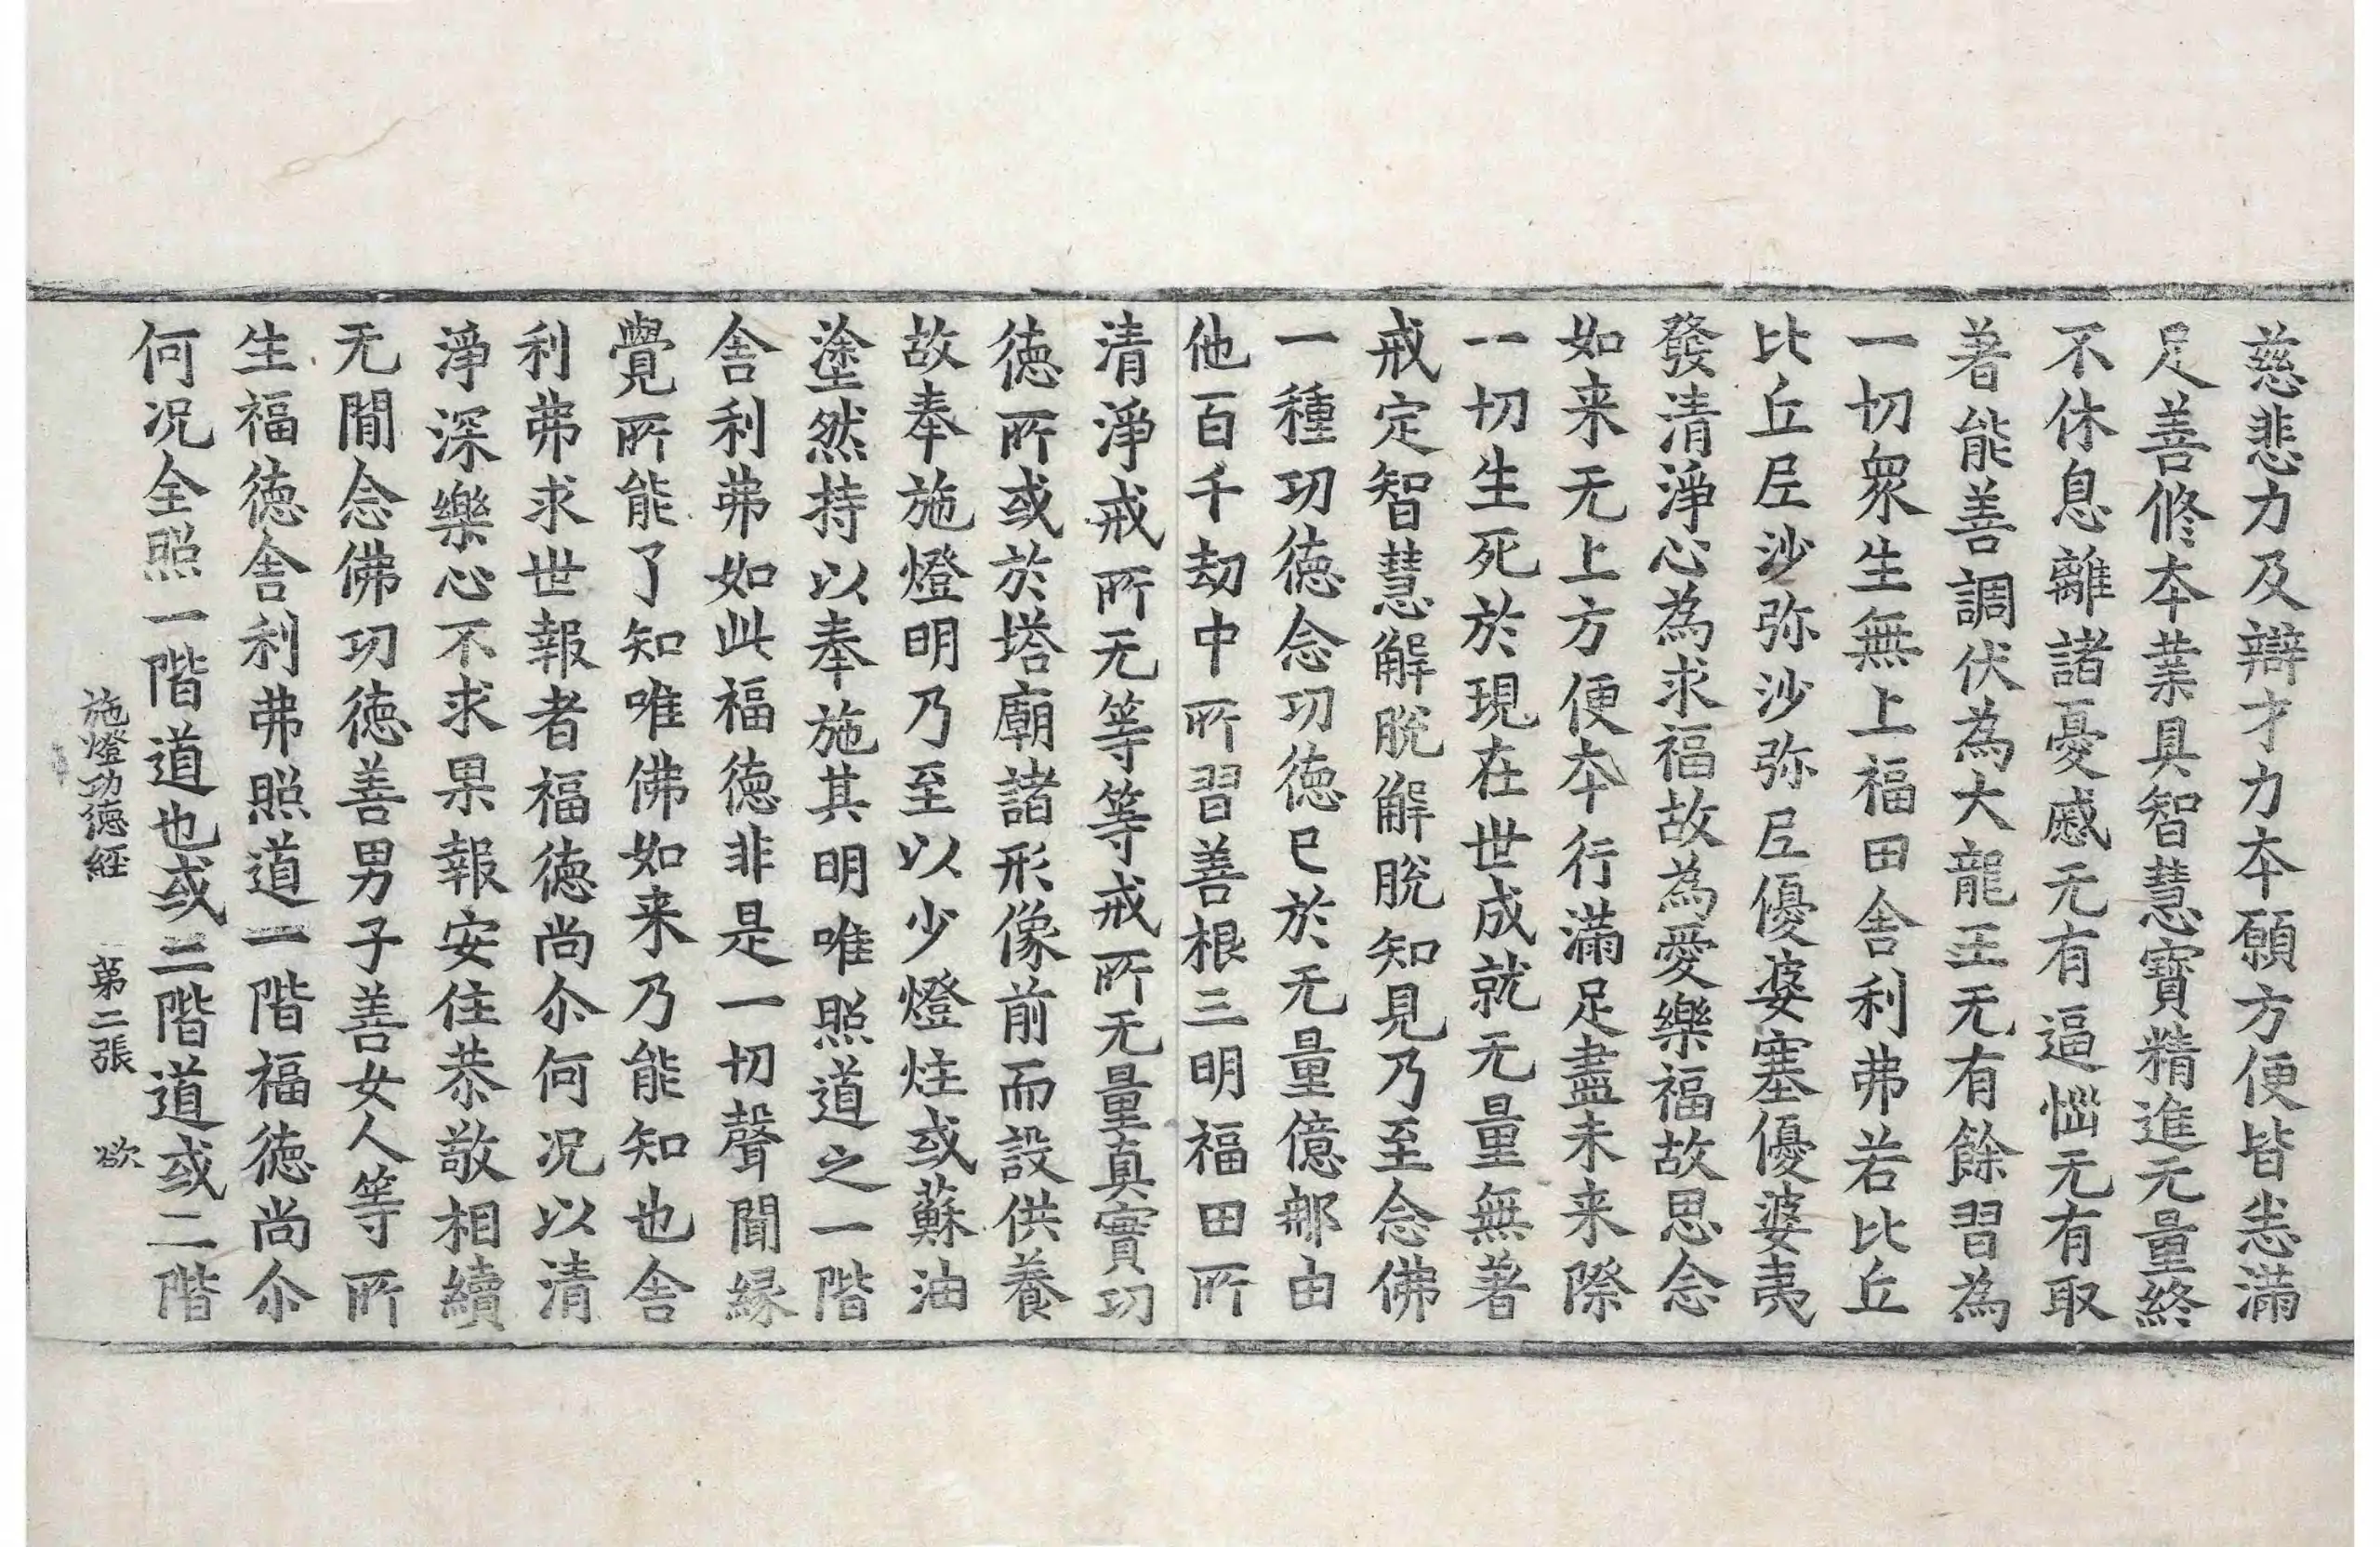 慈悲力及辯才力夲願方便皆悉滿
足善修夲業具智慧寶精進无量終
不休息離諸憂慼无有逼惱无有取
著能善調伏為大龍王无有餘習為
一切衆生無上福田舍利弗若比丘
比丘尼沙弥沙弥尼優婆塞優婆夷
發清淨心為求福故為愛樂福故思念
如来无上方便夲行滿足盡未来際
一切生死於現在世成就无量無著
戒定智慧解脫解脫知見乃至念佛
一種功德念功德已於无量億那由
他百千劫中所習善根三明福田所
清淨戒所无等等戒所无量真實功
德所或於塔廟諸形像前而設供養
故奉施燈明乃至以少燈炷或蘇油
塗然持以奉施其明唯照道之一階
舍利弗如此福德非是一切聲聞緣
覺所能了知唯佛如来乃能知也舍
利弗求世報者福德尚尒何况以清
淨深樂心不求果報安住恭敬相續
无間念佛功德善男子善女人等所
生福德舍利弗照道一階福德尚尒
何况全照一階道也或二階道或三階
施燈功德經 第二張 欲